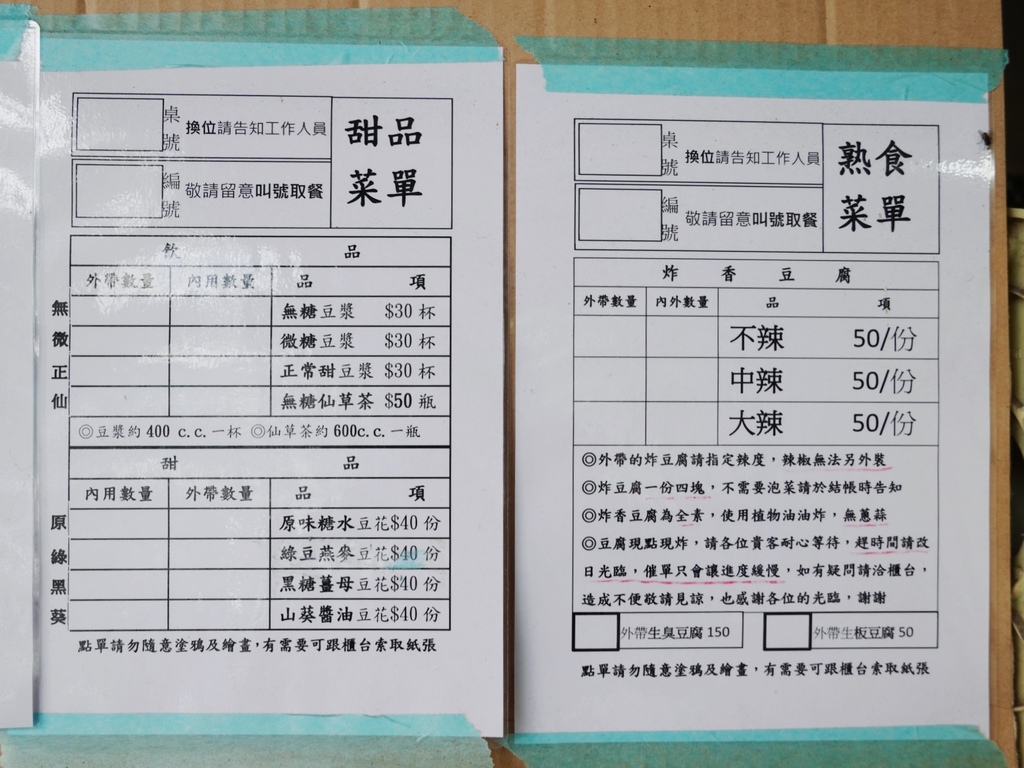 桌號 換位請告知工作人員
編號 敬請留意叫號取餐
甜品
菜單
飲 品
外帶數量 內用數量 品 項
無 無糖豆漿 $30 杯
微 微糖豆漿 $30 杯
正 正常甜豆漿 $30 杯
仙 無糖仙草茶 $50 瓶
◎豆漿約400 c.c.一杯 ◎仙草茶約600c.c.一瓶
甜 品
內用數量 外帶數量 品 項
原 原味糖水豆花$40 份
綠 綠豆燕麥豆花$40 份
黑 黑糖薑母豆花$40 份
葵 山葵醬油豆花$40 份
點單請勿隨意塗鴉及繪畫,有需要可跟櫃台索取紙張
桌號 換位請告知工作人員
編號 敬請留意叫號取餐
熟食
菜單
炸 香 豆 腐
外帶數量 內外數量 品 項
不辣 50/份
中辣 50/份
大辣 50/份
◎外帶的炸豆腐請指定辣度,辣椒無法另外裝
◎炸豆腐一份四塊,不需要泡菜請於結帳時告知
◎炸香豆腐為全素,使用植物油油炸,無蔥蒜
◎豆腐現點現炸,請各位貴客耐心等待,趕時間請改
日光臨,催單只會讓進度緩慢,如有疑問請洽櫃台,
造成不便敬請見諒,也感謝各位的光臨,謝謝
外帶生臭豆腐 150 外帶生板豆腐 50
點單請勿隨意塗鴉及繪畫,有需要可跟櫃台索取紙張